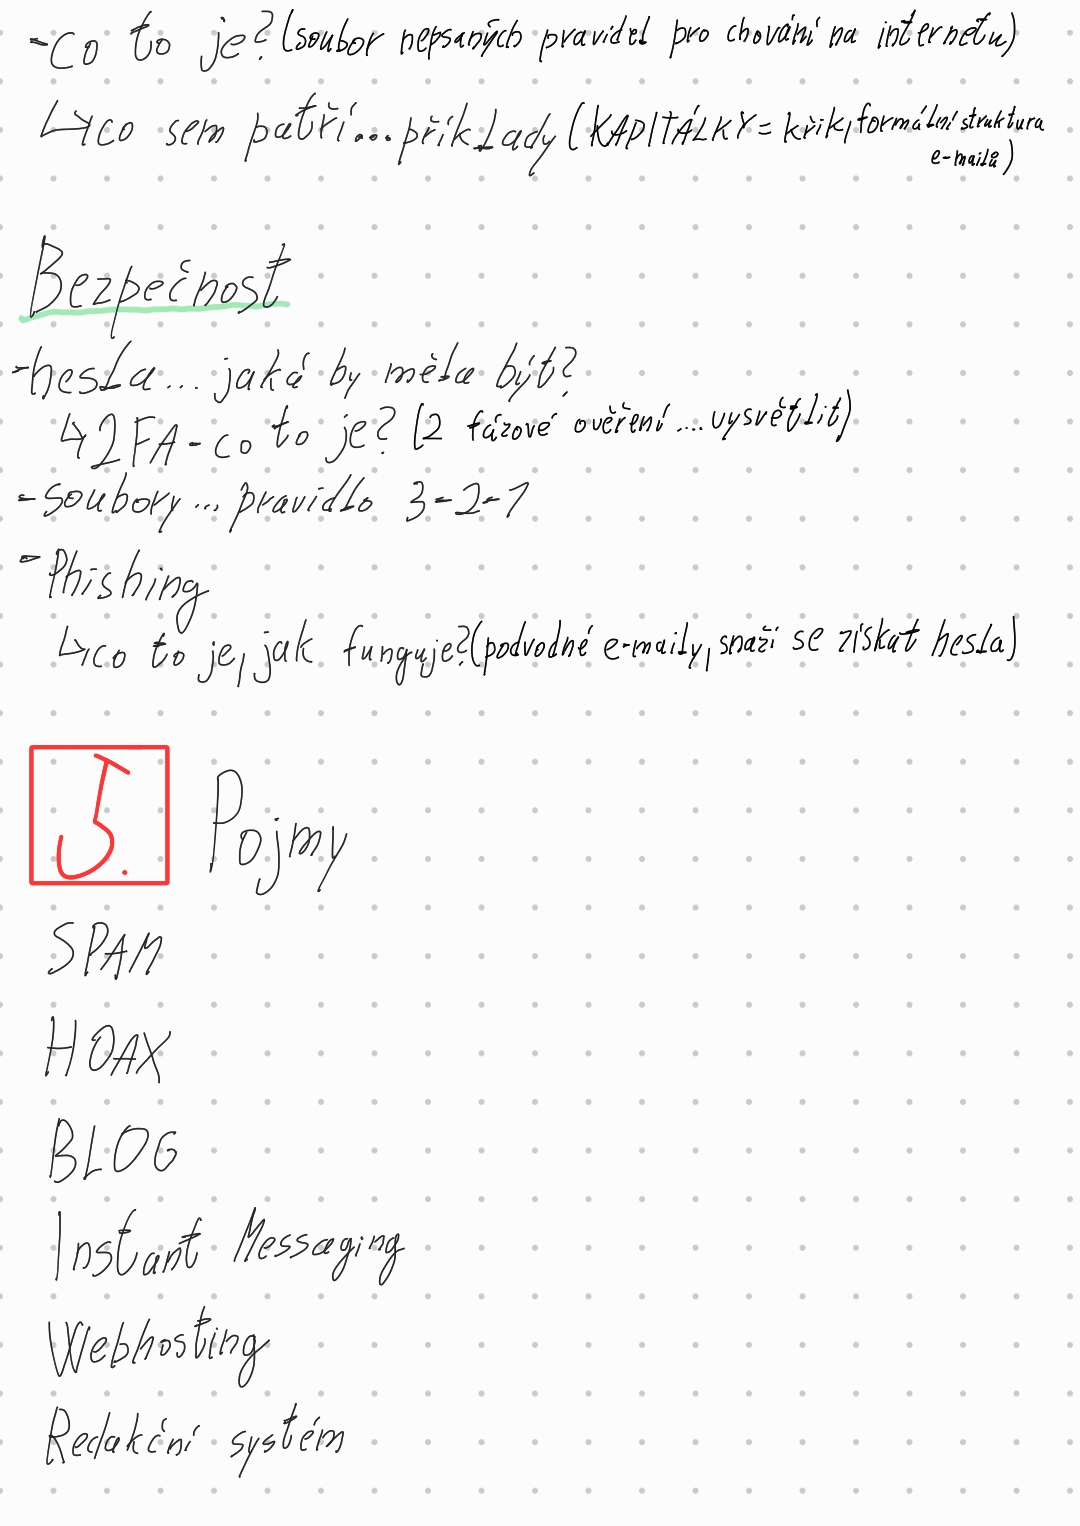 -co to je? (soubor nepsaných pravidel pro chování na internetu)
↳co sem patří...příklady (KAPITÁLKY = křik, formální struktura
e-mailů)
Bezpečnost
-hesla... jaká by měla být?
↳2FA-co to je? (2 fázové ověření ....vysvětlit)
-soubory... pravidlo 3-2-1
-Phishing
↳co to je, jak funguje?(podvodné e-maily, snaží se získat hesla)
5. Pojmy
SPAM
HOAX
BLOG
Instant Messaging
Webhosting
Redakční systém